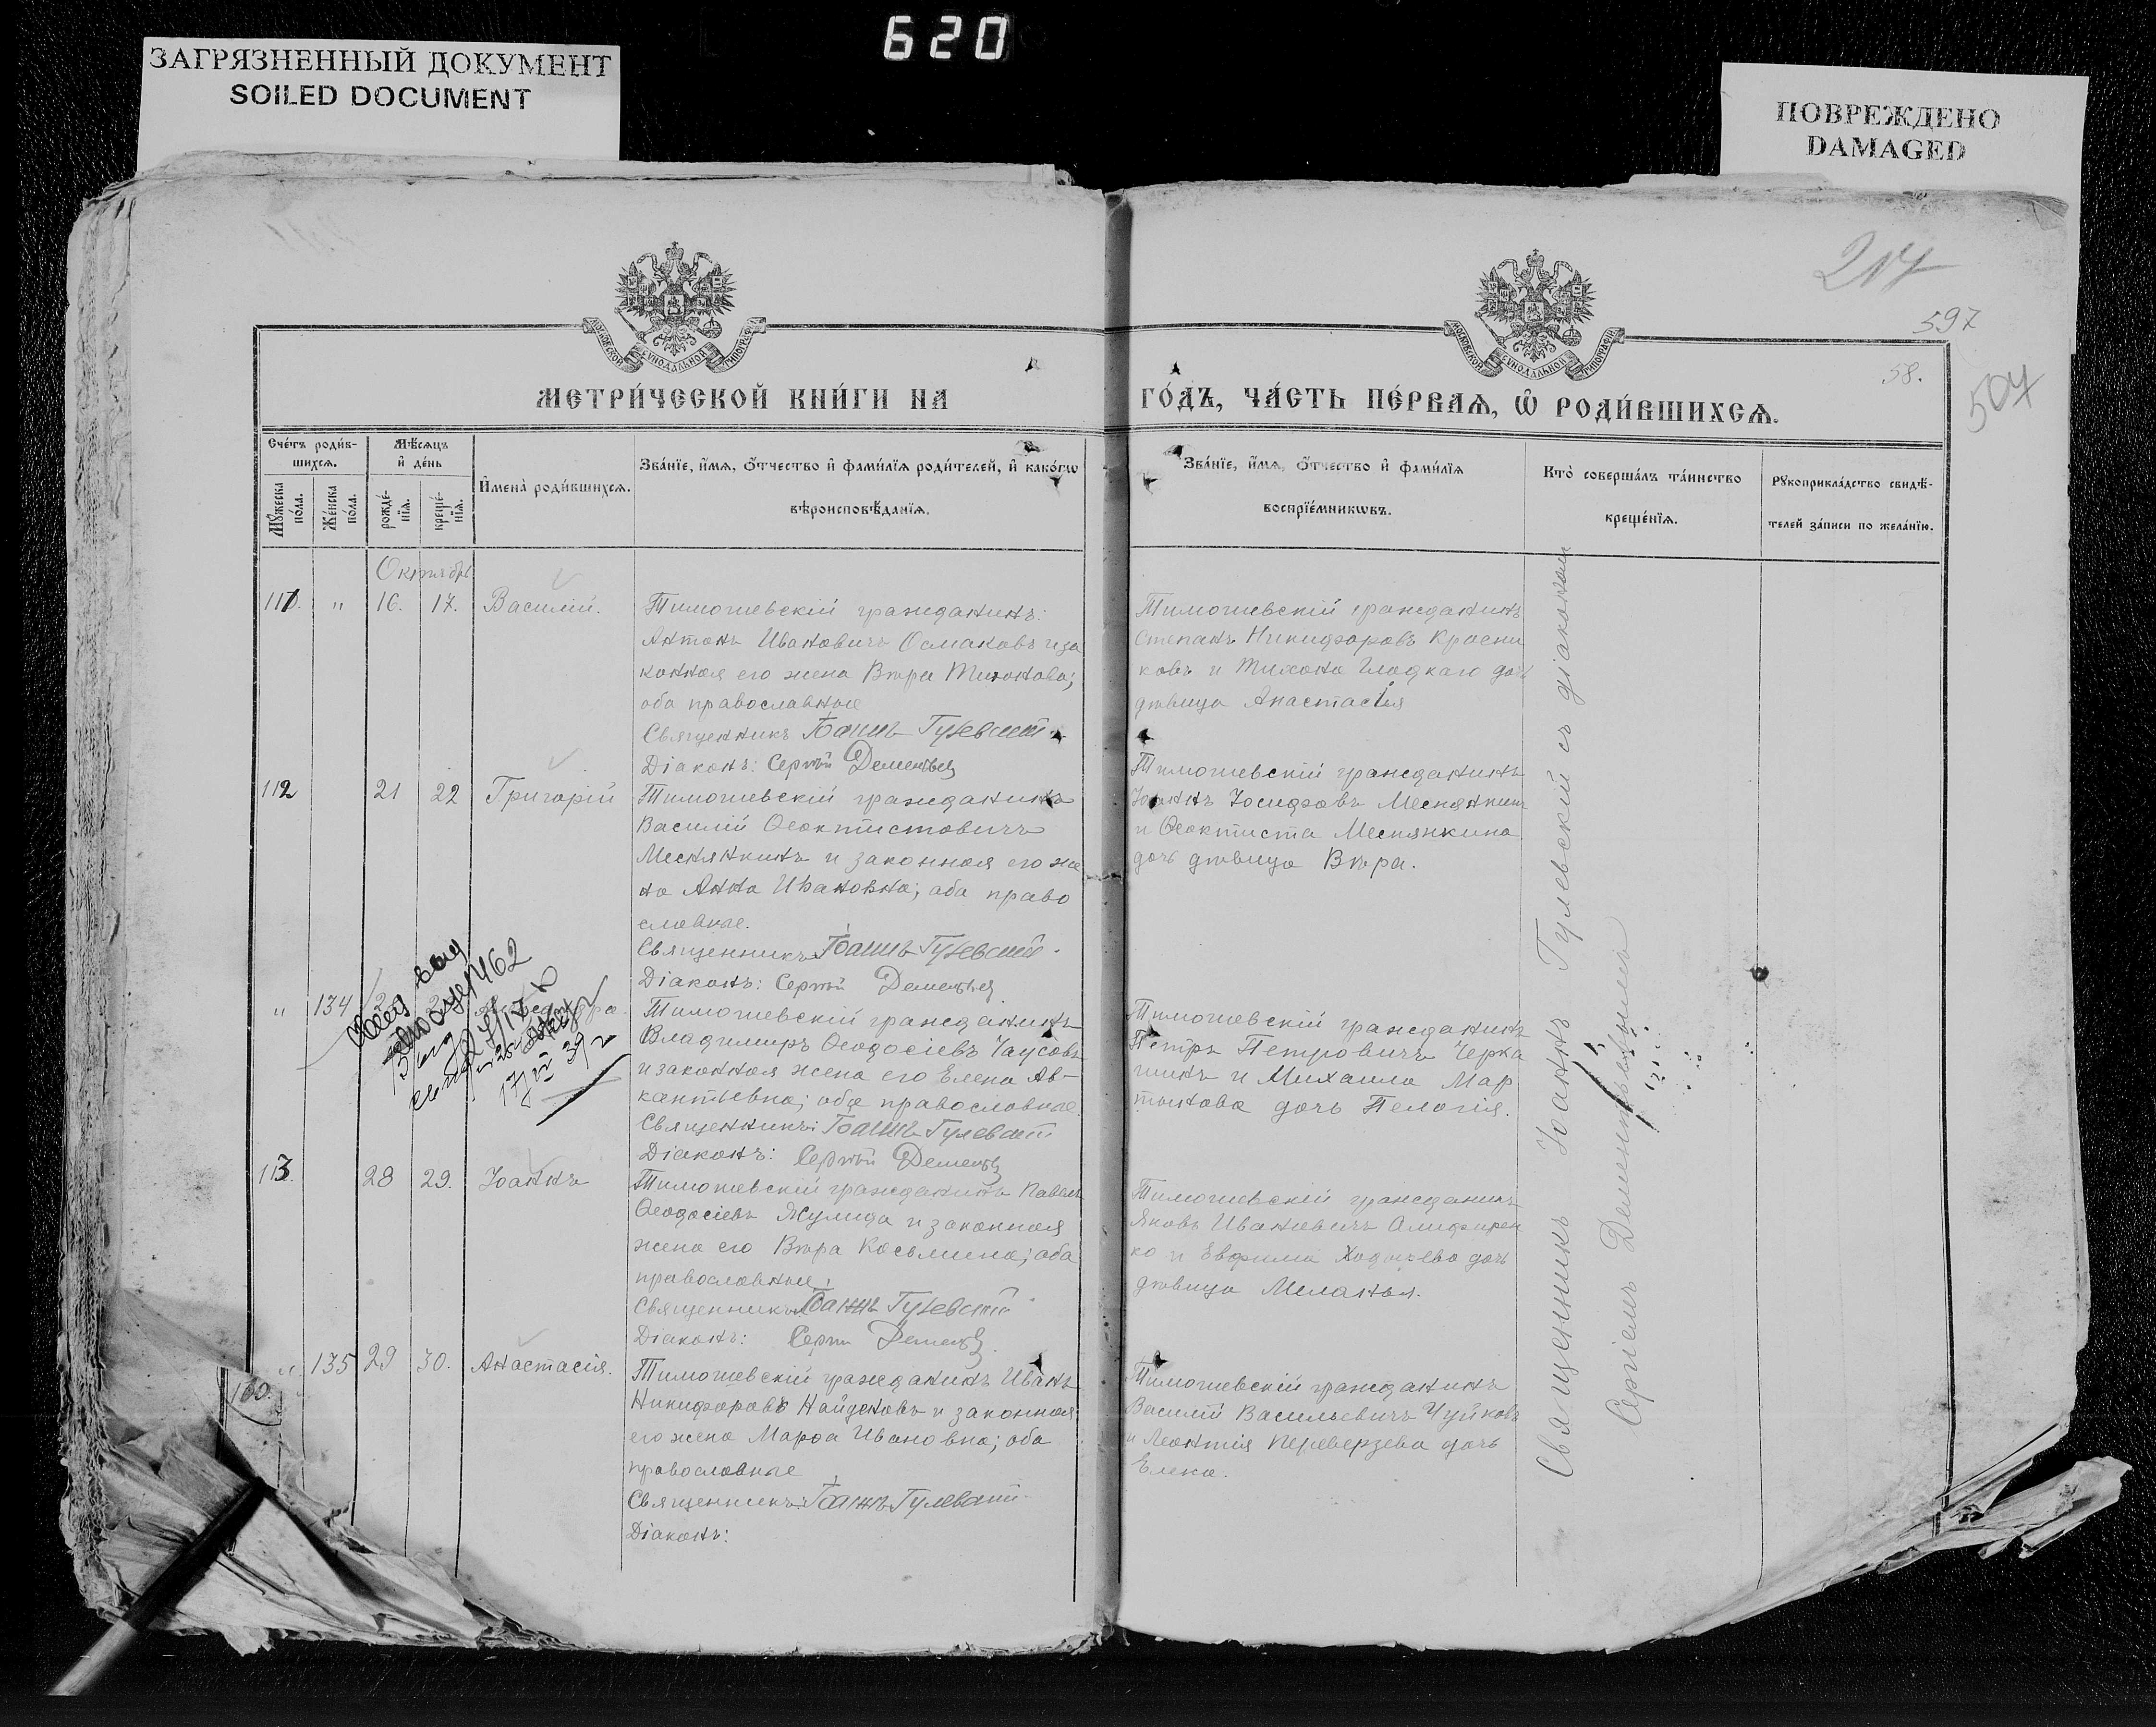 620
ЗАГРЯЗНЕННЫЙ ДОКУМЕНТ
SOILED DOCUMENT
ПОВРЕЖДЕНО
DAMAGED
597
58.
507
МОСКОВСКОЙ СѴНОДАЛЬНОЙ ТИПОГРАФІИ
МОСКОВСКОЙ СѴНОДАЛЬНОЙ ТИПОГРАФІИ
МЕТРИ́ЧЕСКОЙ КНИ́ГИ НА
ГО́ДЪ, ЧА́СТЬ ПЕ́РВАѦ, Ѡ҆ РОДИ́ВШИХСѦ.
Сче́тъ роди́в-
шихсѧ.
Мꙋ́жеска по́ла.
Же́нска по́ла.
Мѣ́сѧцъ
и҆ де́нь
рожде́-
нїѧ.
креще́-
нїѧ.
И҆мена̀ роди́вшихсѧ.
Зва́нїе, и҆́мѧ, ѻ҆́тчество и҆ фами́лїѧ роди́телей, и҆ како́гѡ
вѣроисповѣ́данїѧ.
Зва́нїе, и҆́мѧ, ѻ҆́тчество и҆ фами́лїѧ
воспрїе́мникѡвъ.
Кто̀ соверша́лъ та́инство
креще́нїѧ.
Рꙋкоприкла́дство свидѣ́-
телей за́писи по жела́нїю.
Октябрь
111. " 16. 17. Василій.
Тимошевскій гражданинъ:
Антонъ Ивановичъ Осмаковъ и за
конная его жена Вѣра Тихонова;
оба православные
Священникъ Іоаннъ Гулевскій
Діаконъ: Сергѣй Дементьев
Тимошевскій гражданинъ
Степанъ Никифоровъ Красни
ковъ и Тихона Гладкаго дочь
дѣвица Анастасія
112 21 22 Григорій
Тимошевскій гражданинъ
Василій Ѳеоктистовичъ
Меснянкинъ и законная его же
на Анна Ивановна; оба право
славные.
Священникъ Іоаннъ Гулевскій
Діаконъ: Сергѣй Дементьев
Тимошевскій гражданинъ
Іоаннъ Іосифовъ Меснянкинъ
и Ѳеоктиста Меснянкина
дочь дѣвица Вѣра.
" 134
Тимошевскій гражданинъ
Владимиръ Ѳеодосіевъ Чаусовъ
и законная жена его Елена Ав-
кантьевна; оба православные.
Священникъ: Іоаннъ Гулевскій
Діаконъ: Сергѣй Дементьев
Тимошевскій гражданинъ
Петръ Петровичъ Черка
шинъ и Михаила Мар
тынова дочь Пелагія.
113. 28 29. Іоаннъ
Тимошевскій гражданинъ Павелъ
Ѳеодосіевъ Жулида и законная
жена его Вѣра Косьмина; оба
православные
Священникъ Іоаннъ Гулевскій
Діаконъ: Сергѣй Дементьев
Тимошевскій гражданинъ
Яковъ Ивановичъ Олифирен
ко и Евфима дочь
дѣвица Меланья.
" 135 29 30. Анастасія.
160.
Тимошевскій гражданинъ Иванъ
Никифоровъ Найденовъ и законная
его жена Марѳа Ивановна; оба
православные
Священникъ Іоаннъ Гулевскій
Діаконъ:
Тимошевскій гражданинъ
Василій Васильевичъ Чуйковъ
и Леонтія Переверзева дочь
Елена.
Священникъ Іоаннъ Гулевскій съ діакономъ
Сергіемъ Дементьевымъ